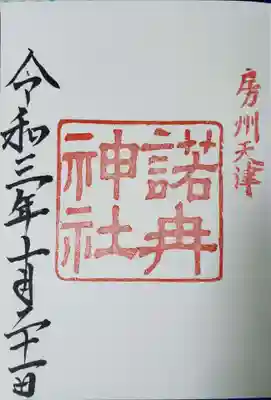 房州天津
諾冉
神社
令和三年十月二十一日